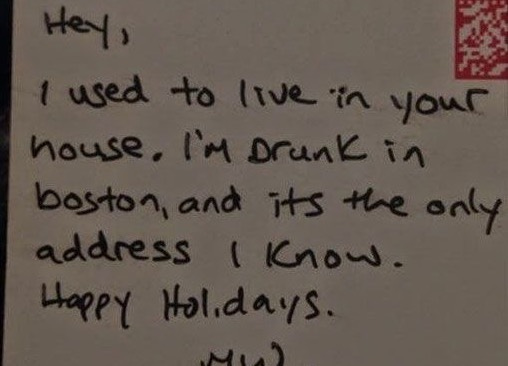 Hey,
I used to live in your
house. I'm Drunk in
boston, and its the only
address I know.
Happy Holidays.